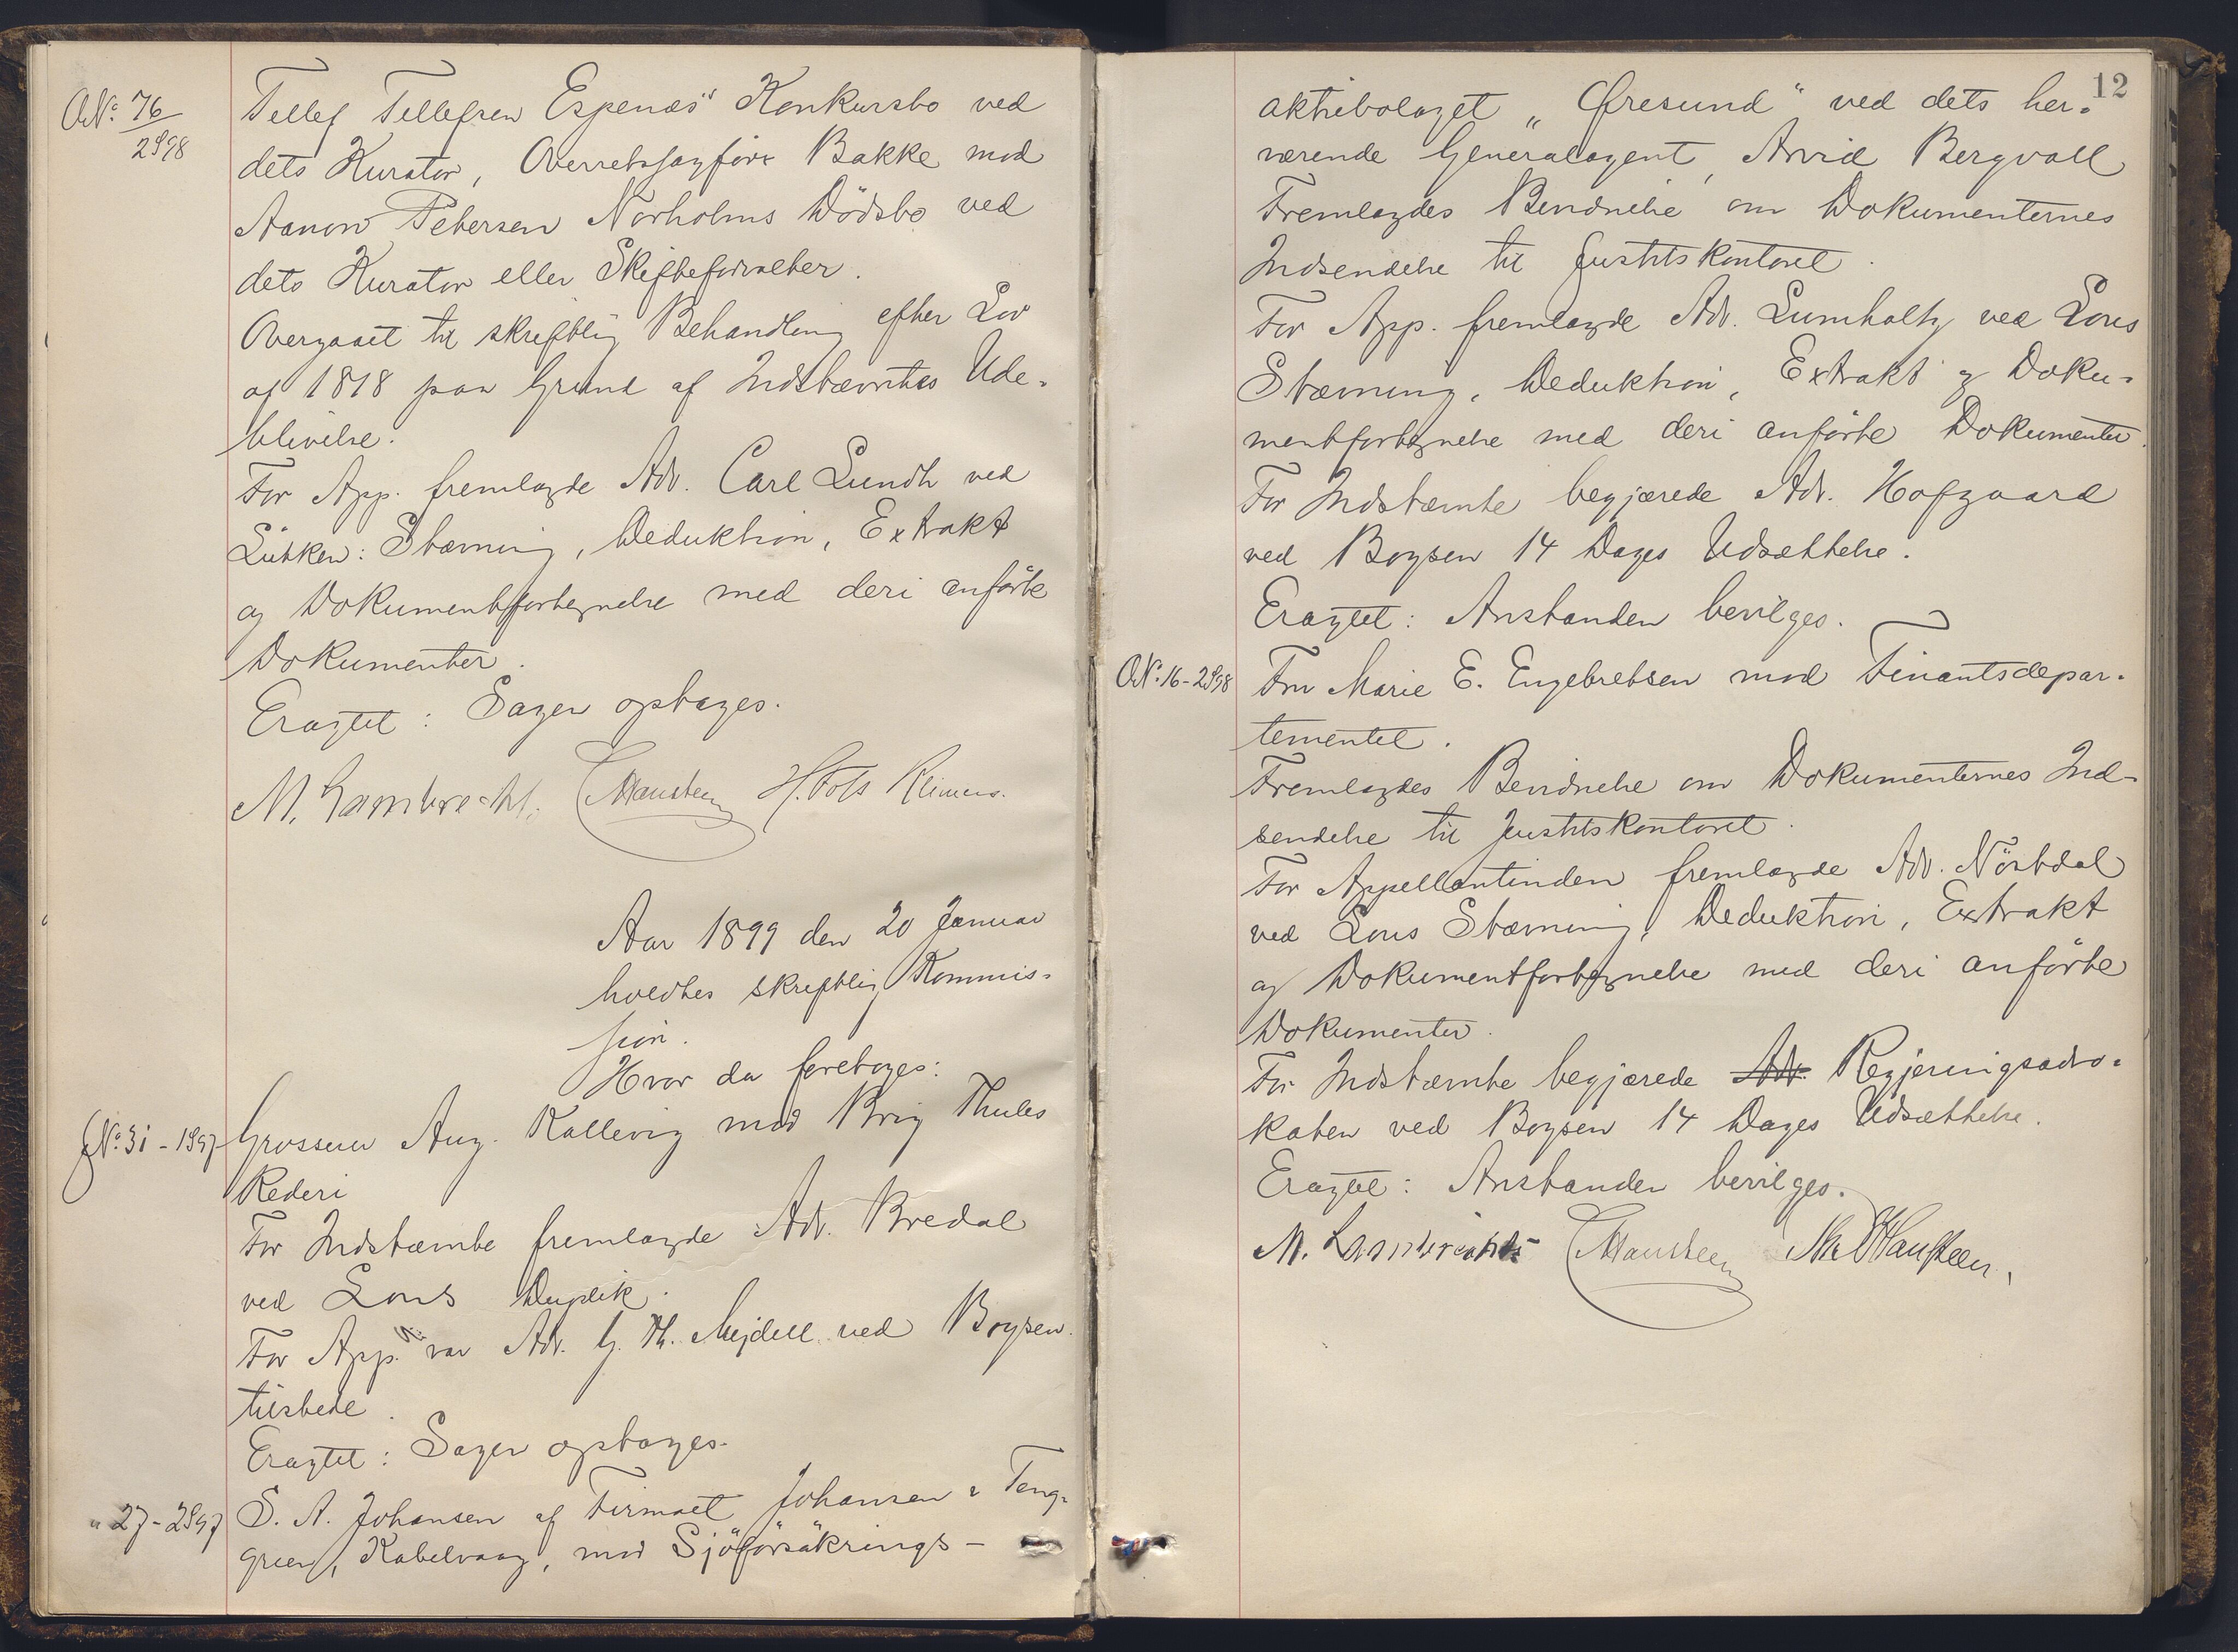 No. 76
2 S 98
Tellef Tellefsen Espenæs' Konkursbo ved
dets Kurator, Overretssagfører Bakke mod
Aanon Petersen Nørholms Dödsbo ved
dets Kurator eller Skifteforvalter.
Overgaaet til skriftlig Behandling efter Lov
af 1818 paa Grund af Indstævntes Ude-
blivelse.
For App. fremlagde Adv. Carl Lundh ved
Lütken: Stævning, Deduktion, Extrakt
og Dokumentfortegnelse med deri anførte
Dokumenter.
Eragtet: Sagen optages.
M. Lambrechts. Hansteen
Aar 1899 den 20 Januar
holdtes skriftlig Kommis-
sion.
Hvor da foretoges:
No. 31 - 1 S 97
Grosserer Aug. Kallevig mod Brig Thules
Rederi
For Indstævnte fremlagde Adv. Bredal
ved Lous Duplik.
For App. var Adv. G. Th. Mejdell ved Boysen
tilstede.
Eragtet: Sagen optages.
" 27 - 2 S 97
S. A. Johansen af Firmaet Johansen & Teng-
green, Kabelvaag, mod Sjöförsäkrings-
12
aktiebolaget „Öresund" ved dets her-
værende Generalagent, Arvid Bergvall
Fremlagdes Bevidnelse om Dokumenternes
Indsendelse til Justitskontoret.
For App. fremlagde Adv. Lumholtz ved Lous
Stævning, Deduktion, Extrakt og Doku-
mentfortegnelse med deri anførte Dokumenter.
For Indstævnte begjærede Adv. Hofgaard
ved Boysen 14 Dages Udsættelse.
Eragtet: Anstanden bevilges.
No. 16 - 2 S 98
Fru Marie E. Engebretsen mod Finantsdepar-
tementet.
Fremlagdes Bevidnelse om Dokumenternes Ind-
sendelse til Justitskontoret.
For Appellantinden fremlagde Adv. Nörstdal
ved Lous Stævning, Deduktion, Extrakt
og Dokumentfortegnelse med deri anførte
Dokumenter.
For Indstævnte begjærede Adv. Regjeringsadvo-
katen ved Boysen 14 Dages Udsættelse.
Eragtet: Anstanden bevilges.
M. Lambrechts Hansteen